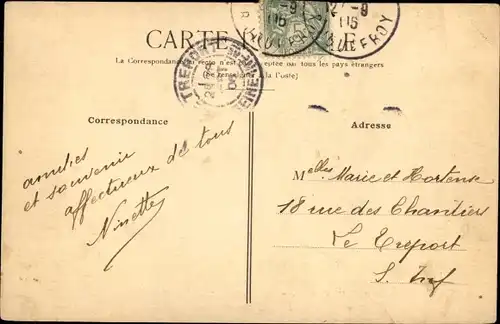 CARTE
La Correspondance au recto n'est pas acceptée par tous les pays étrangers
(Se renseigner à la Poste)
Correspondance
Adresse
amitiés
et souvenir
affectueux de tous
Ninette
Melles Marie et Hortense
18 rue des Chantiers
Le Treport
S. Inf